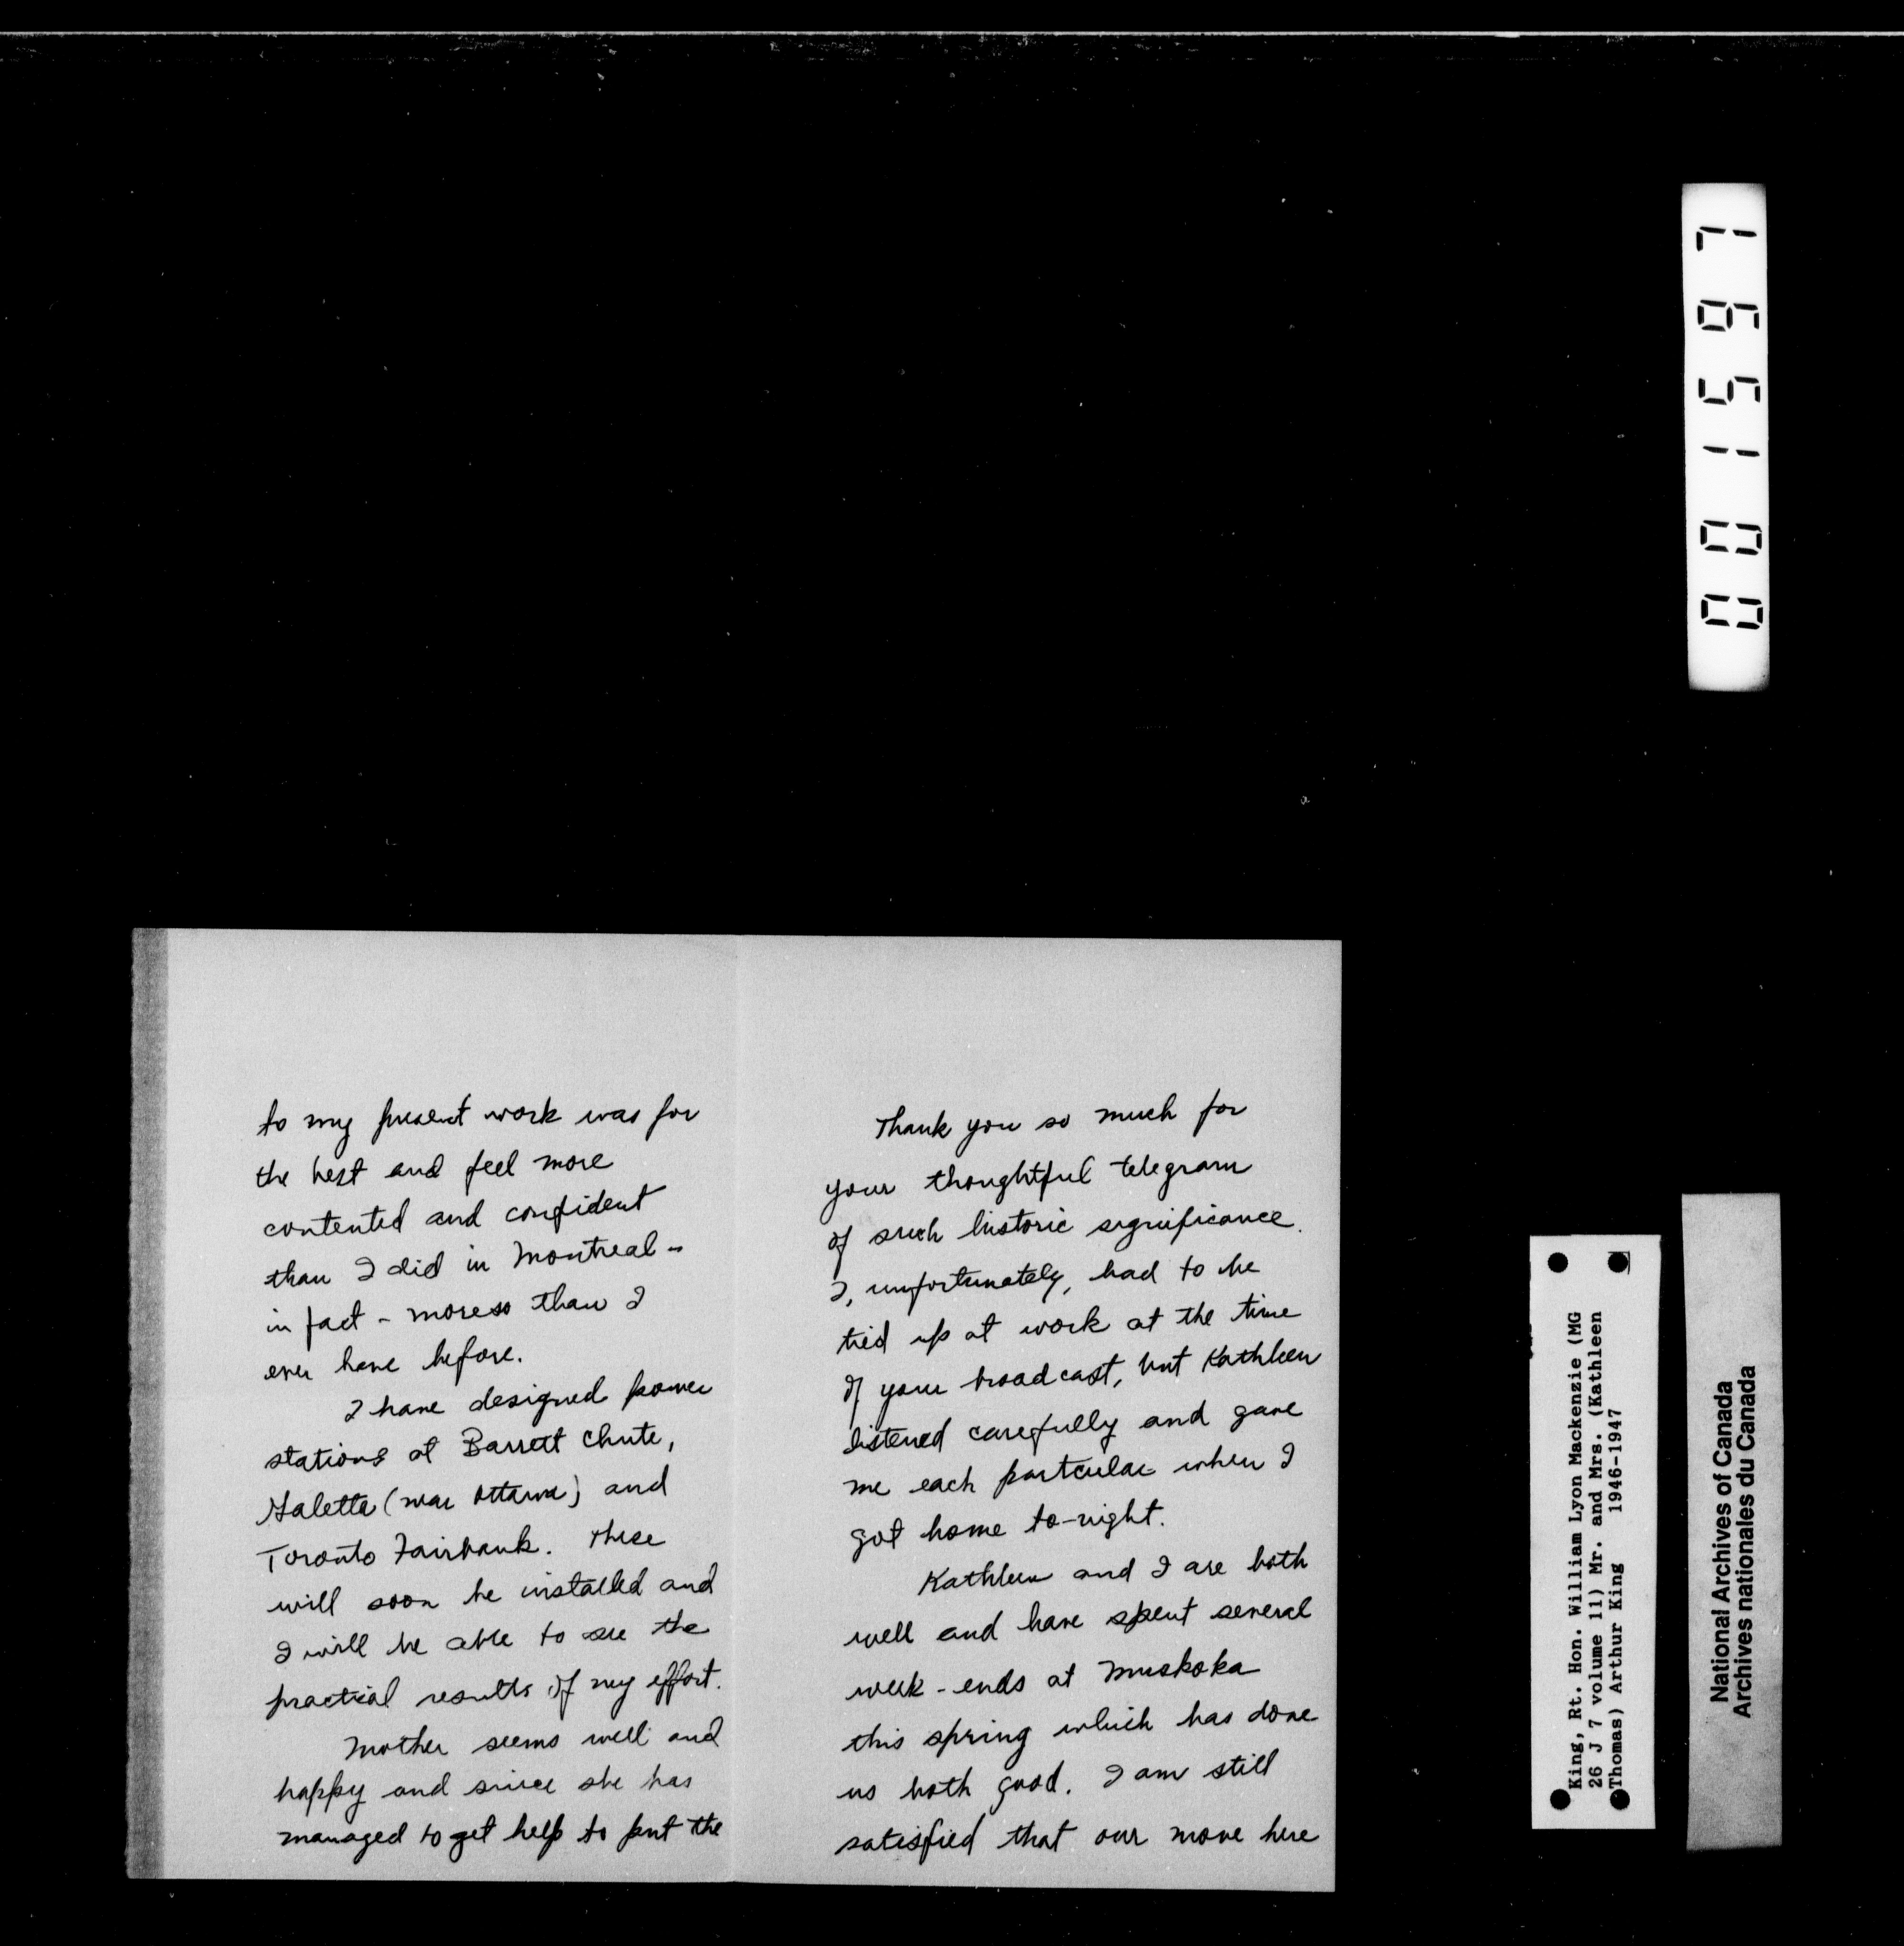 to my present work was for
the best and feel more
contented and confident
than I did in Montreal -
in fact - more so than I
ever have before.
I have designed power
stations at Barrett Chute,
Galetta (near Ottawa) and
Toronto Fairbank. These
will soon be installed and
I will be able to see the
practical results of my effort.
Mother seems well and
happy and since she has
managed to get help to put the
Thank you so much for
your thoughtful telegram
of such historic significance.
I, unfortunately, had to be
tied up at work at the time
of your broadcast, but Kathleen
listened carefully and gave
me each particular when I
got home to-night.
Kathleen and I are both
well and have spent several
week-ends at Muskoka
this spring which has done
us both good. I am still
satisfied that our move here
001567
King, Rt. Hon. William Lyon Mackenzie (MG
26 J 7 volume 11) Mr. and Mrs. (Kathleen
Thomas) Arthur King 1946-1947
National Archives of Canada
Archives nationales du Canada